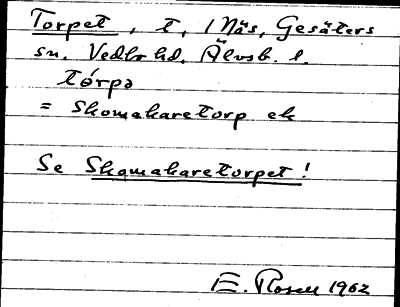 Torpet, t, 1 Näs, Gesäters
sn. Vedbo hd. Älvsb. l.
tórpə
= Skomakaretorp ek
Se Skomakaretorpet!
E. Rosen 1962